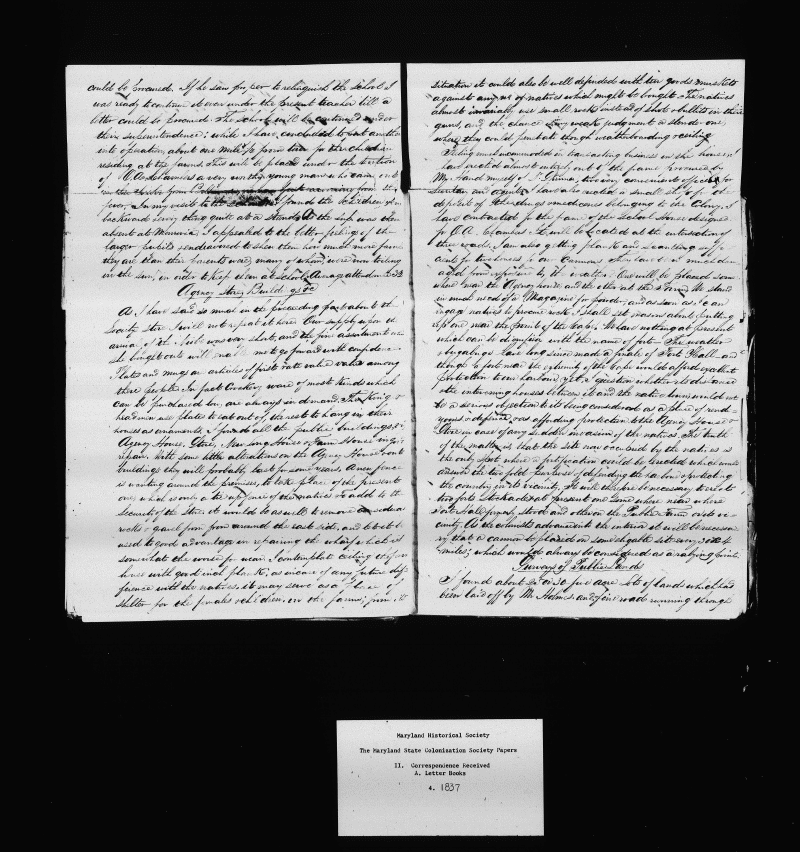 could be procured. If he saw proper to relinquish the school I
was ready to continue it even under the present teacher till a
better could be procured. The school will be continued under
their superintendence; while I have concluded to put another
into operation, about one mile from for the children
residing at the farms. This will be placed under the tuition
of a very worthy young man who came out
in the from
year. In my visits to the I found the children
backward every thing quite at a stand. the supt was then
absent at Monrovia. I appealed to the better feelings of the
larger pupils & endeavoured to shew them how much more favored
they are than their parents were, many of whom, were now toiling
in the sun, in order to keep them at school. Average attendance 33
Agency Store, Buildings &c
As I have said so much in the preceding part about the
Society store I will not repeat it here. Our supply upon the
arrival of the Niobe was very short, and the fine assortment
she brought out will enable me to go forward with confidence.
Plates and mugs are articles of first rate value among
these people. In fact Crockery ware of most kinds which
can be purchased low, are always in demand. The king &
headmen use plates to eat out of, the rest to hang in their
houses as ornaments. I found all the public buildings,
Agency House, Store, New long House & Farm House in good
repair. With some little alterations on the Agency House front
buildings they will probably last for some years. A new fence
is wanting around the premises, to take place of the present
one, which is only a of the natives. To add to the
security of the store it would be as well to remove
rocks & gravel from around the east side, and to
used to good advantage in repairing the wharf which is
somewhat the worse for wear. I contemplate ceiling
with good inch plank; as in case of any future difference
with the natives, it may serve as a place of
shelter for the females & children, on the farms; from its
situation it could also be well defended with ten good muskets
against any no of natives which might be brought. The natives
almost invariably use small rocks instead of shot & bullets in their
guns, and the chance in my judgment a slender one
where they could penetrate though weatherboarding & ceiling
Feeling much incommoded in transacting business in the house
I erected almost entirely out of the frame procured by
Mr Hand myself of a very convenient office for
Secretary and agent. I have also erected a small shop for
deposit of the drugs & medicines belonging to the Colony. I
have contracted for the frame of the School House designed
for O. A. Chambers. It will be located at the intersection of
the roads. I am also getting plank and scantling
for two houses in our Cannons which have been much damaged
from exposure to the weather. One will be placed some
where near the Agency house and the other at the Farm. We stand
in much need of a Magazine for powder, and as soon as I can
engage natives to procure rock, I shall set masons about putting
up one near the point of the Cape. We have nothing at present
which can be dignified with the name of fort. The weather
& bugabugs have long since made a finale of Fort Hall and
though a fort near the extremity of the Cape would afford excellent
protection to our harbour, yet I question whether its distance &
the intervening houses between it and the native towns would not
be a serious objection to its being considered as a place of rendezvous
& defence, or as affording protection to the Agency House &
Store in case of any sudden invasion of the natives. The truth
of the matter is that the site now occupied by the natives is
the only spot where a fortification could be erected which would
answer the two fold purpose of defending the harbour & protecting
the country in its vicinity. It will therefore be necessary to erect
two forts Stockades at present one some where near where
Forte Hall formerly stood and other on the Public Farm or its vicinity.
As the colonists advance into the interior it will be necessary
that a cannon be placed on some eligible site every 3 or 4
miles; which would always be considered as a rallying point.
Surveys of Public Lands
I found about 20 or 30 five acre lots of land which had
been laid off by Mr Holmes, and fine road running through
Maryland Historical Society
The Maryland State Colonization Society Papers
II. Correspondence Received
A. Letter Books
4. 1837